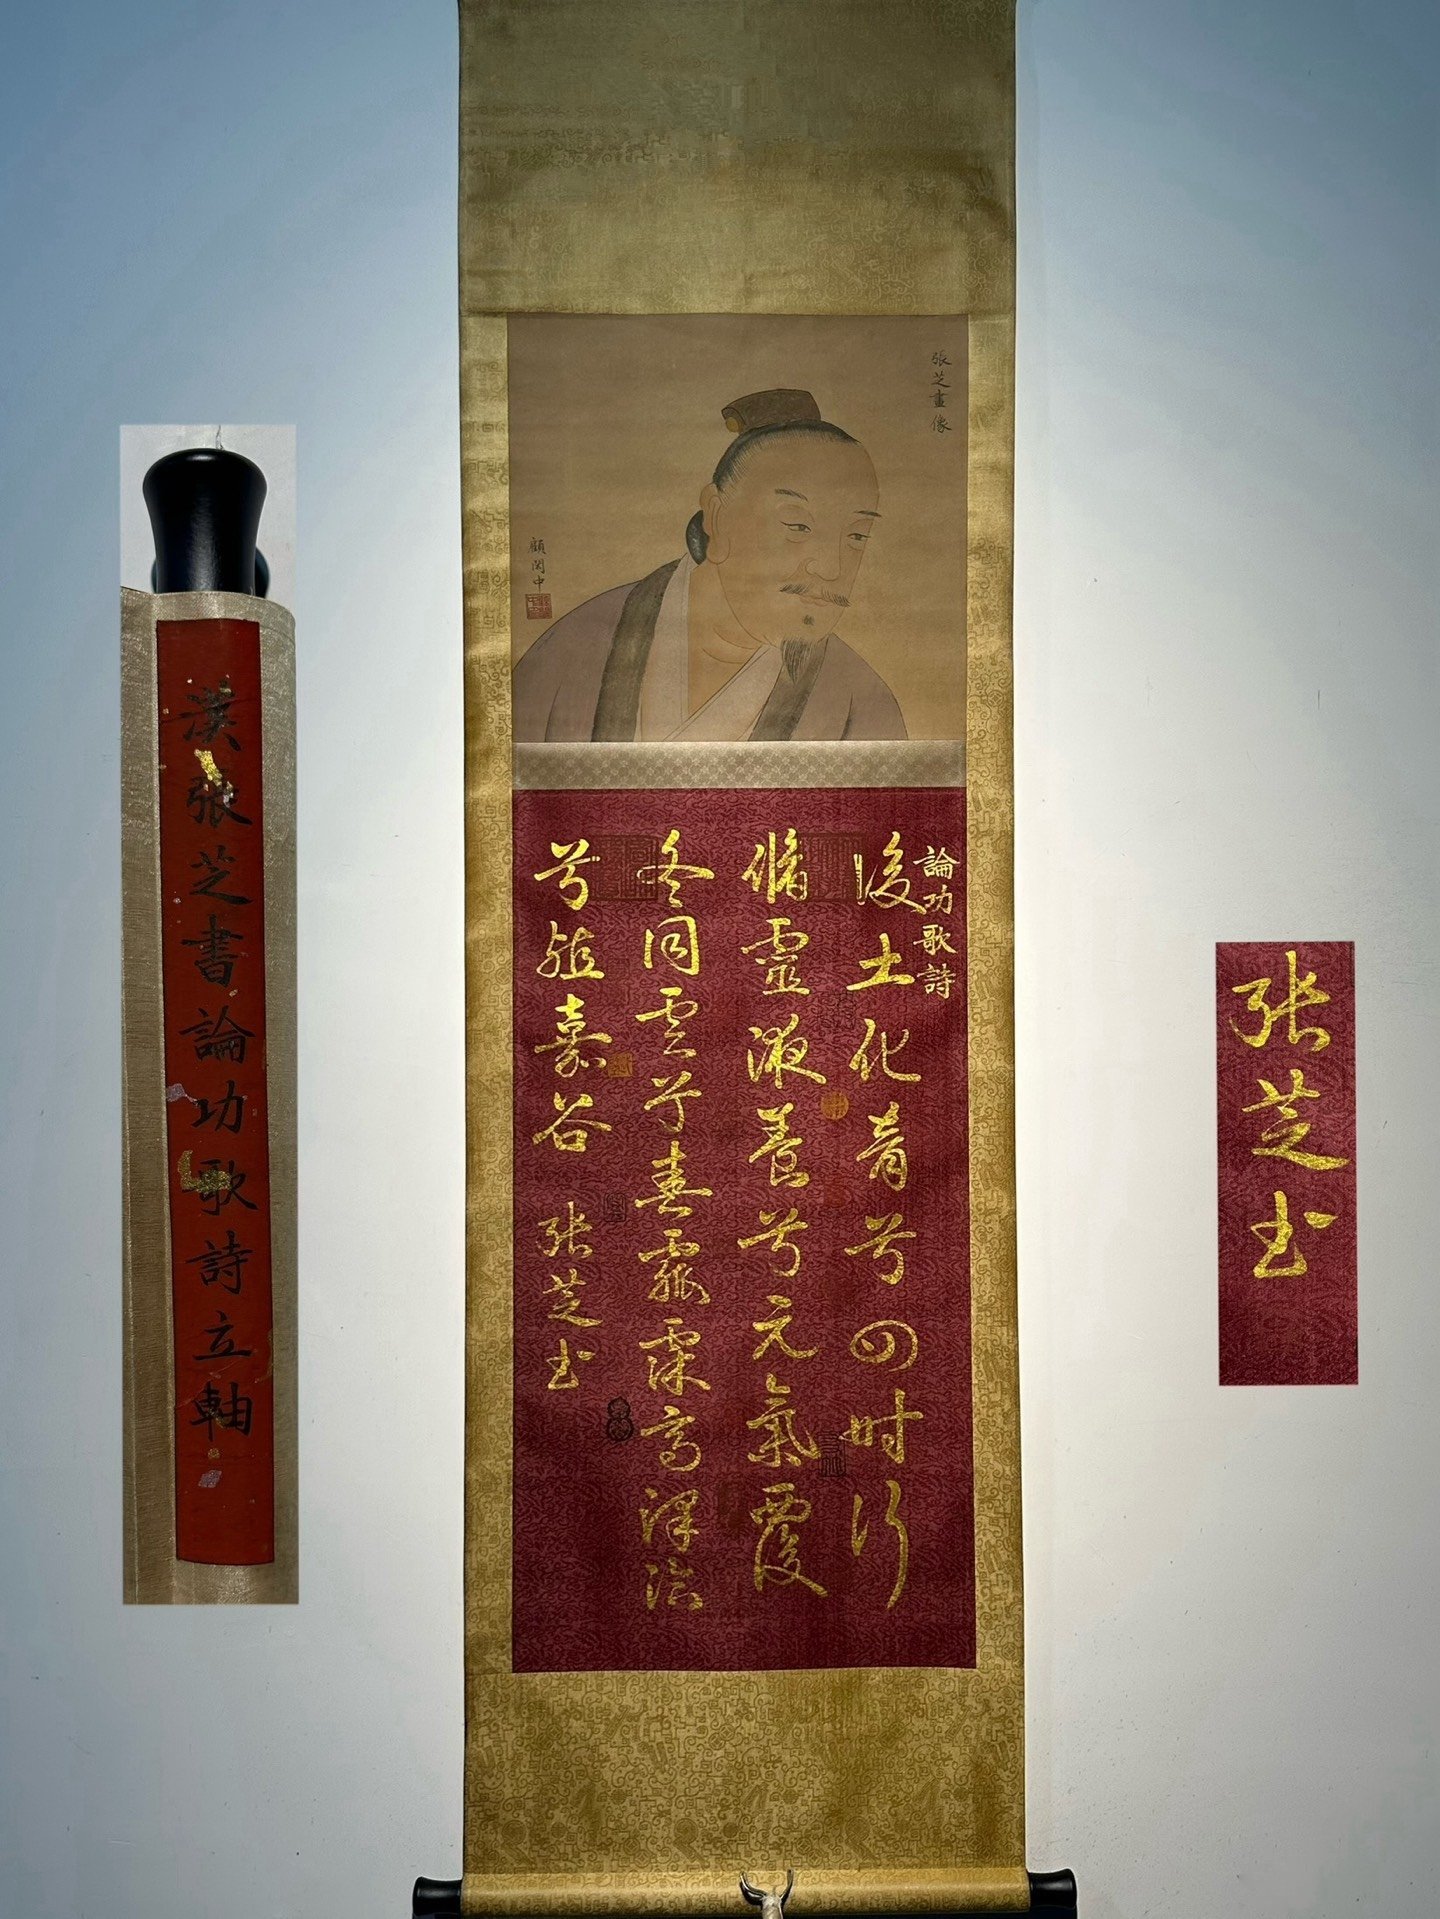 漢張芝書論功歌詩立軸
張芝畫像
顧閎中
論功歌詩
後土化育兮四時行
脩靈液養兮元氣覆
冬同雲兮春霢霂膏澤洽
兮殖嘉谷 張芝書
張芝書